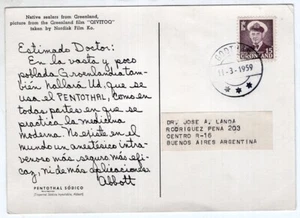 Native sealers from Greenland,
picture from the Greenland film "QIVITOQ"
taken by Nordisk Film Ko.
Estimado Doctor:
En la vasta y poco
poblada Groenlandia tam
bién hallará Ud. que se
usa el PENTOTHAL, como en
todas partes en que se
practica la medicina
moderna. No existe en el
mundo un anestésico intra-
venoso más seguro, más efi-
caz, ni de más aplicaciones
Abbott
PENTOTHAL SÓDICO
GRØNLAND
15
11-3-1959
DR. JOSE A. LANDA
RODRIGUEZ PENA 203
CENTRO R-16
BUENOS AIRES ARGENTINA